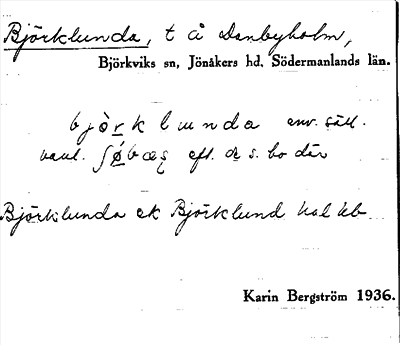 Björklunda, t å Danbyholm,
Björkviks sn, Jönåkers hd, Södermanlands län.
björklunda env. sätt.
vanl. eft. de s. bo där
Björklunda ek Björklund
Karin Bergström 1936.